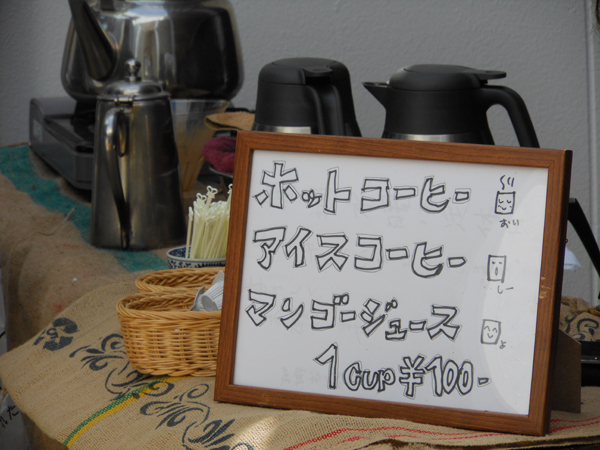 ホットコーヒー
おい
アイスコーヒー
しー
マンゴージュース
よ
1 cup ¥100-